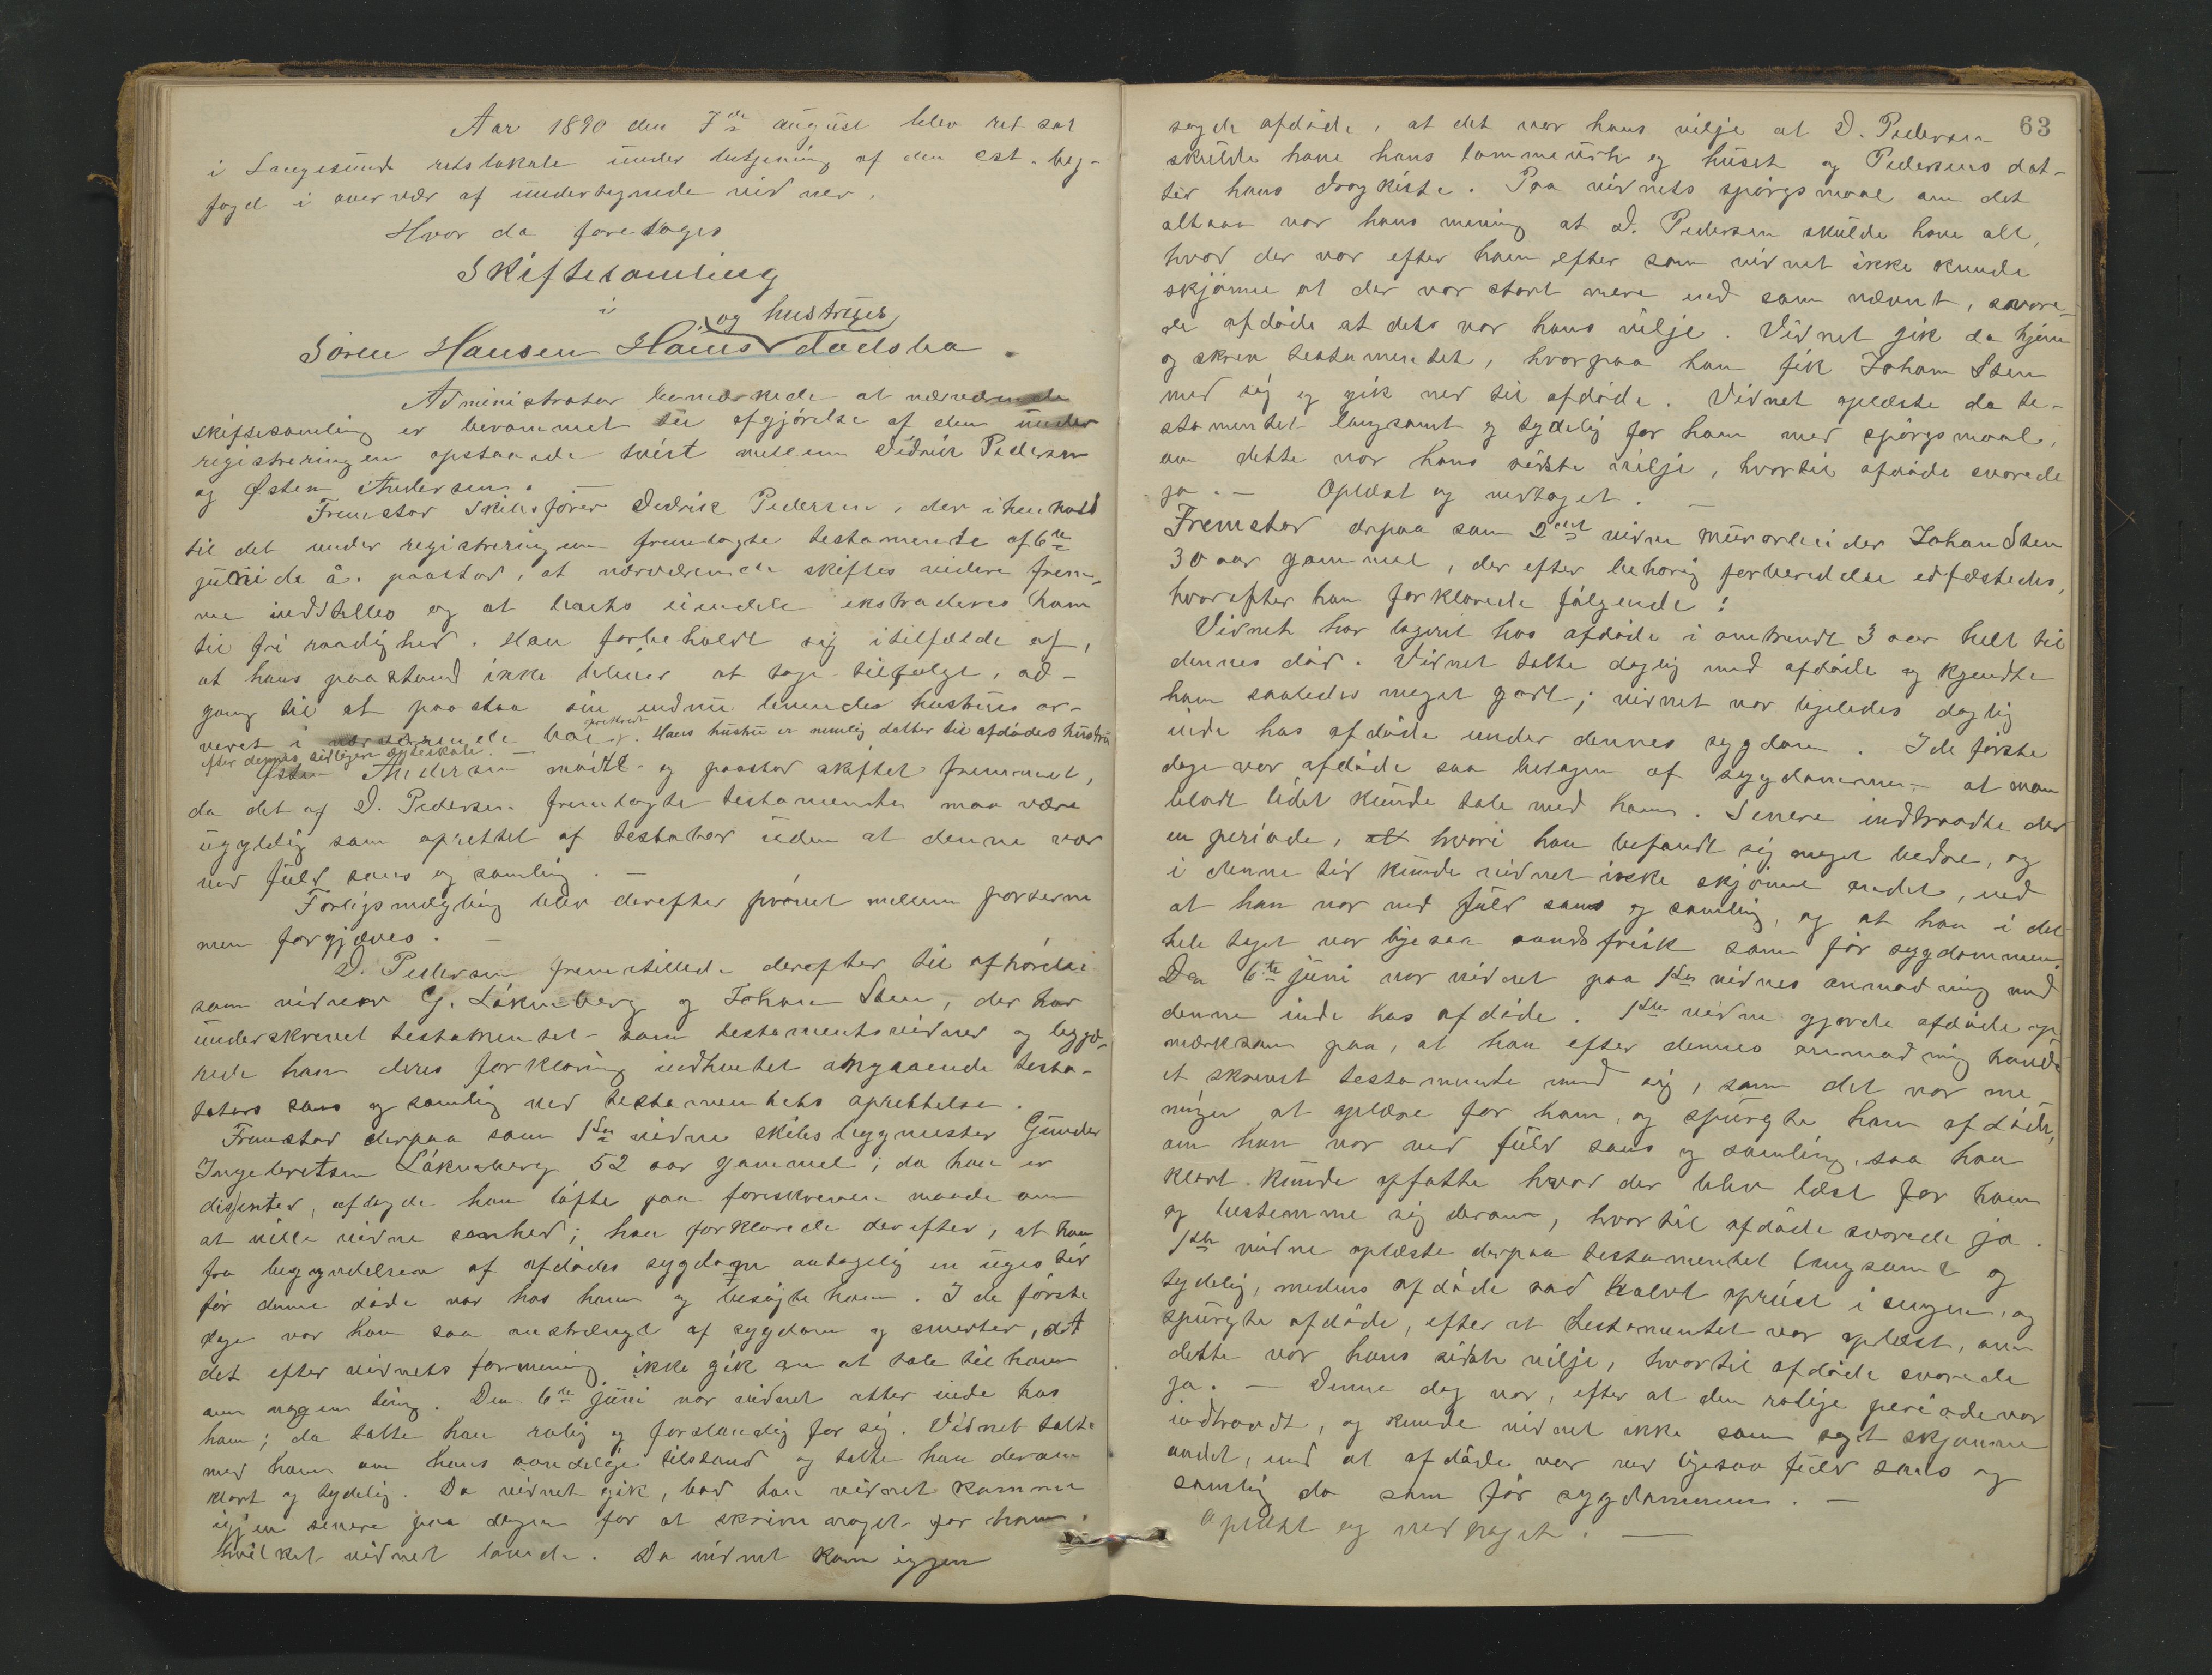 Aar 1890 den 7de august blev ret sat
i Langesunds retslokale under betjening af den cst. by-
fogd i overvær af undertegnede vidner.
Hvor da foretoges
Skiftesamling
i
og hustrues
Søren Hansen Haus dødsbo.
Administrator bemærkede at nærværende
skiftesamling er berammet til afgjørelse af den under
registreringen opstaaede tvist mellem Didrik Pedersen
og Østen Andersen.
Fremstod Skibsfører Dedrik Pedersen, der i henhold
til det under registreringen fremlagte testamente af 6te
juni d. å. paastod, at nærværende skiftes videre frem-
me indstilles og at boets eiendele ekstraderes ham
til fri raadighed. Han forbeholdt sig i tilfælde af,
at hans paastand ikke bliver at tage tilfølge, ad-
gang til at paastaa sin endnu levende hustrus ar-
veret i nærværende bo. Hans hustru er nemlig datter til afdødes hustru
efter dennes tidligere ægteskab. —
Østen Andersen mødte og paastod skiftet fremmet,
da det af D. Pedersen fremlagte testamente maa være
ugyldig som oprettet af testator uden at denne var
ved fuld sans og samling. —
Forligsmægling blev derefter prøvet mellem parterne
men forgjæves. —
D. Pedersen fremstillede derefter til afhørelse
som vidner G. Låkneberg og Johan Sten, der har
underskrevet testamentet som testamentsvidner og begjæ-
rede han deres forklaring indhentet angaaende testa-
tors sans og samling ved testamentets oprettelse.
Fremstod derpaa som 1ste vidne skibsbygmester Gunder
Ingebretsen Låkneberg 52 aar gammel; da han er
dissenter, aflagde han løfte paa foreskreven maade om
at ville vidne sanhed; han forklarede derefter, at han
fra begyndelsen af afdødes sygdom antagelig en uges tid
før denne døde var hos ham og besøgte ham. I de første
dage var han saa anstrengt af sygdom og smerter, at
det efter vidnets formening ikke gik an at tale til ham
om nogen ting. Den 6te juni var vidnet atter inde hos
ham; da talte han rolig og forstandig for sig. Vidnet talte
med ham om hans aandelige tilstand og talte han derom
klart og tydelig. Da vidnet gik, bad han vidnet komme
igjen senere paa dagen for at skrive noget for ham,
hvilket vidnet lovede. Da vidnet kom igjen
63
sagde afdøde, at det var hans vilje at D. Pedersen
skulde have hans lommeurh og huset og Pedersens dat-
ter hans dragkiste. Paa vidnets spørgsmaal om det
altsaa var hans mening at D. Pedersen skulde have alt,
hvad der var efter ham, eftersom vidnet ikke kunde
skjønne at der var stort mere end som nævnt, svare-
de afdøde at dets var hans vilje. Vidnet gik da hjem
og skrev testamentet, hvorpaa han fik Johan Sten
med sig og gik ned til afdøde. Vidnet oplæste da te-
stamentet langsomt og tydelig for ham med spørgsmaal,
om dette var hans sidste vilje, hvortil afdøde svarede
ja. — Oplæst og vedtaget. —
Fremstod derpaa som 2det vidne murarbeider Johan Sten
30 aar gammel, der efter behørig forberedelse edfæstedes,
hvorefter han forklarede følgende:
Vidnet har logeret hos afdøde i omtrendt 3 aar helt til
dennes død. Vidnet talte daglig med afdøde og kjendte
ham saaledes meget godt; vidnet var ligeledes daglig
inde hos afdøde under dennes sygdom. I de første
dage var afdøde saa betagen af sygdommen, at man
blodt lidet kunde tale med ham. Senere indtraadte der
en periode, at hvori han befandt sig meget bedre, og
i denne tid kunde vidnet ikke skjønne andet, end
at han var ved fuld sans og samling, og at han i det
hele taget var ligesaa aandsfrisk som før sygdommen.
Den 6te juni var vidnet paa 1ste vidnes anmodning med
denne inde hos afdøde. 1ste vidne gjorde afdøde op-
mærksom paa, at han efter dennes anmodning havde
et skrevet testamente med sig, som det var me-
ningen at oplæse for ham, og spurgte han afdøde,
om han var ved fuld sans og samling, saa han
klart kunde opfatte hvad der blev læst for ham
og bestemme sig derom, hvortil afdøde svarede ja.
1ste vidne oplæste derpaa testamentet langsomt og
tydelig, medens afdøde sad halvt opreist i sengen, og
spurgte afdøde, efter at testamentet var oplæst, om
dette var hans sidste vilje, hvortil afdøde svarede
ja. — Denne dag var, efter at den rolige periode var
indtraadt, og kunde vidnet ikke som sagt skjønne
andet, end at afdøde var ved ligesaa fuld sans og
samling da som før sygdommen. —
Oplæst og vedtaget. —